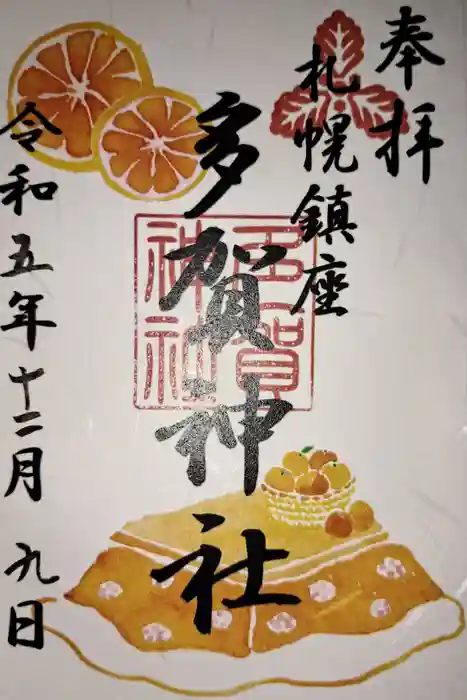 奉拝
札幌鎮座
多賀神社
多賀
神社
令和五年十二月九日